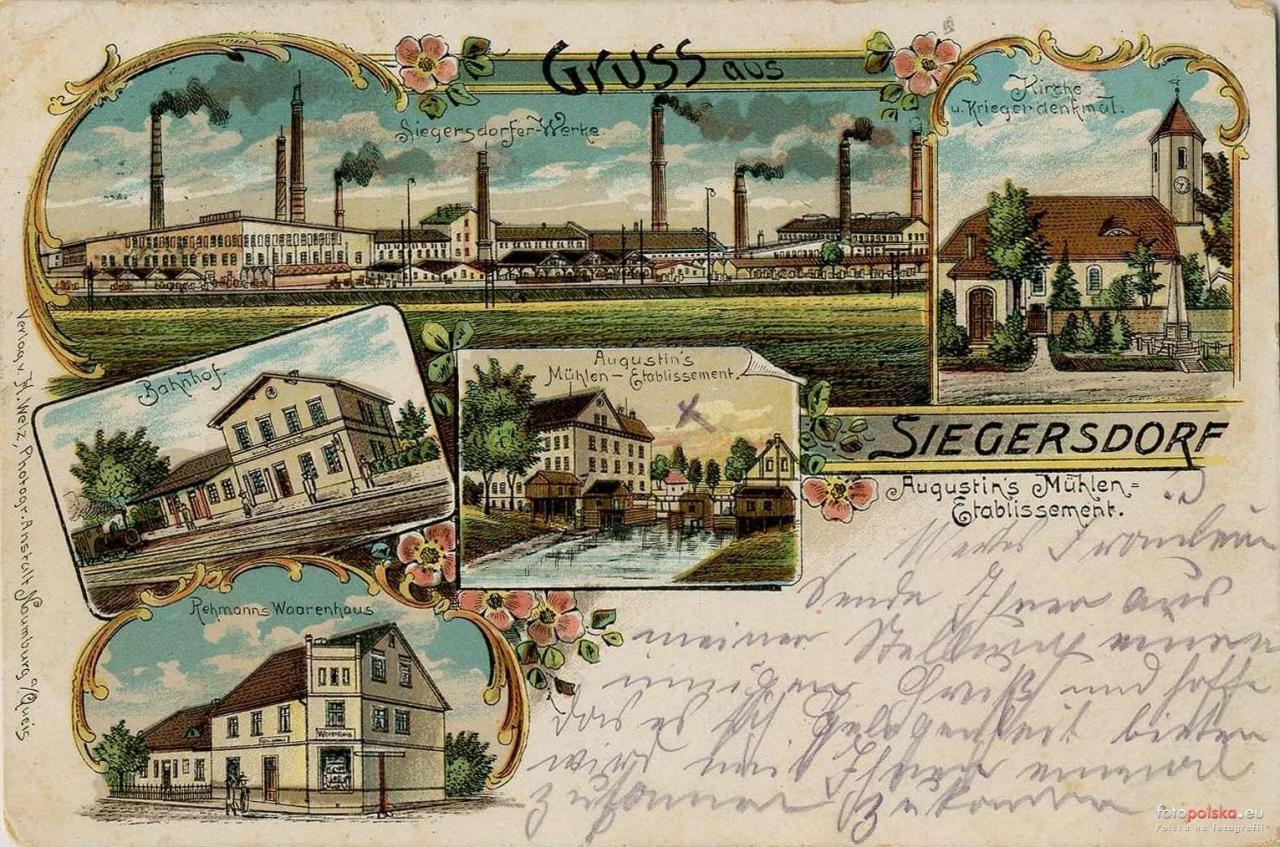 Gruss aus
Siegersdorfer-Werke
Kirche
u. Kriegerdenkmal.
Bahnhof.
Augustin's
Mühlen-Etablissement.
SIEGERSDORF
Augustin's Mühlen=
Etablissement.
Rehmanns Waarenhaus
Waarenhaus
Verlag v. H. Welz, Photogr. Anstalt, Naumburg a/Queis
Wertes Fräulein
Sende Ihnen aus
meiner Stellung einen
innigen Gruß und hoffe
das es sich Gelegenheit bieten
wird mit Ihnen einmal
zusammen zu kommen
fotopolska.eu
Polska na fotografii